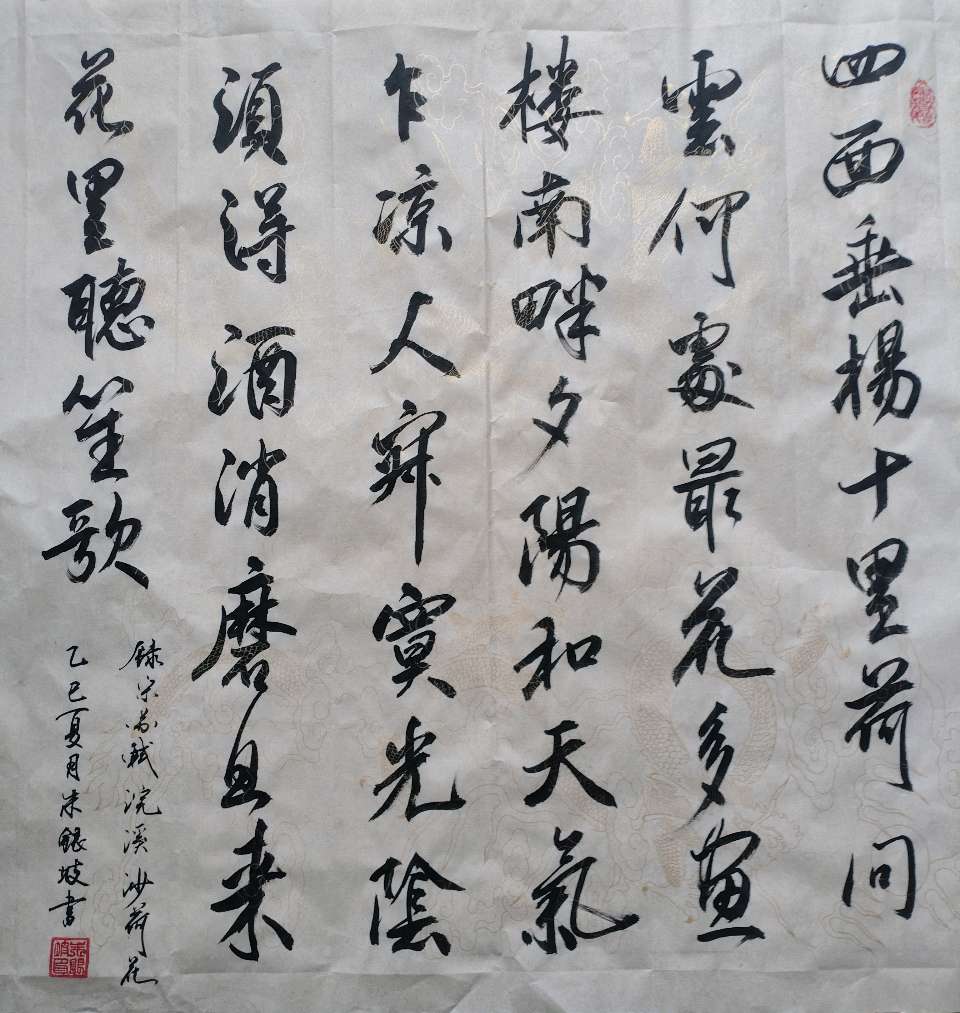 四面垂楊十里荷问
雲何處最花多畫
楼南畔夕陽和天氣
乍凉人寂寞光陰
須得酒消磨且来
花里聽笙歌
録宋苏軾浣溪沙荷花
乙巳夏月朱銀坡書